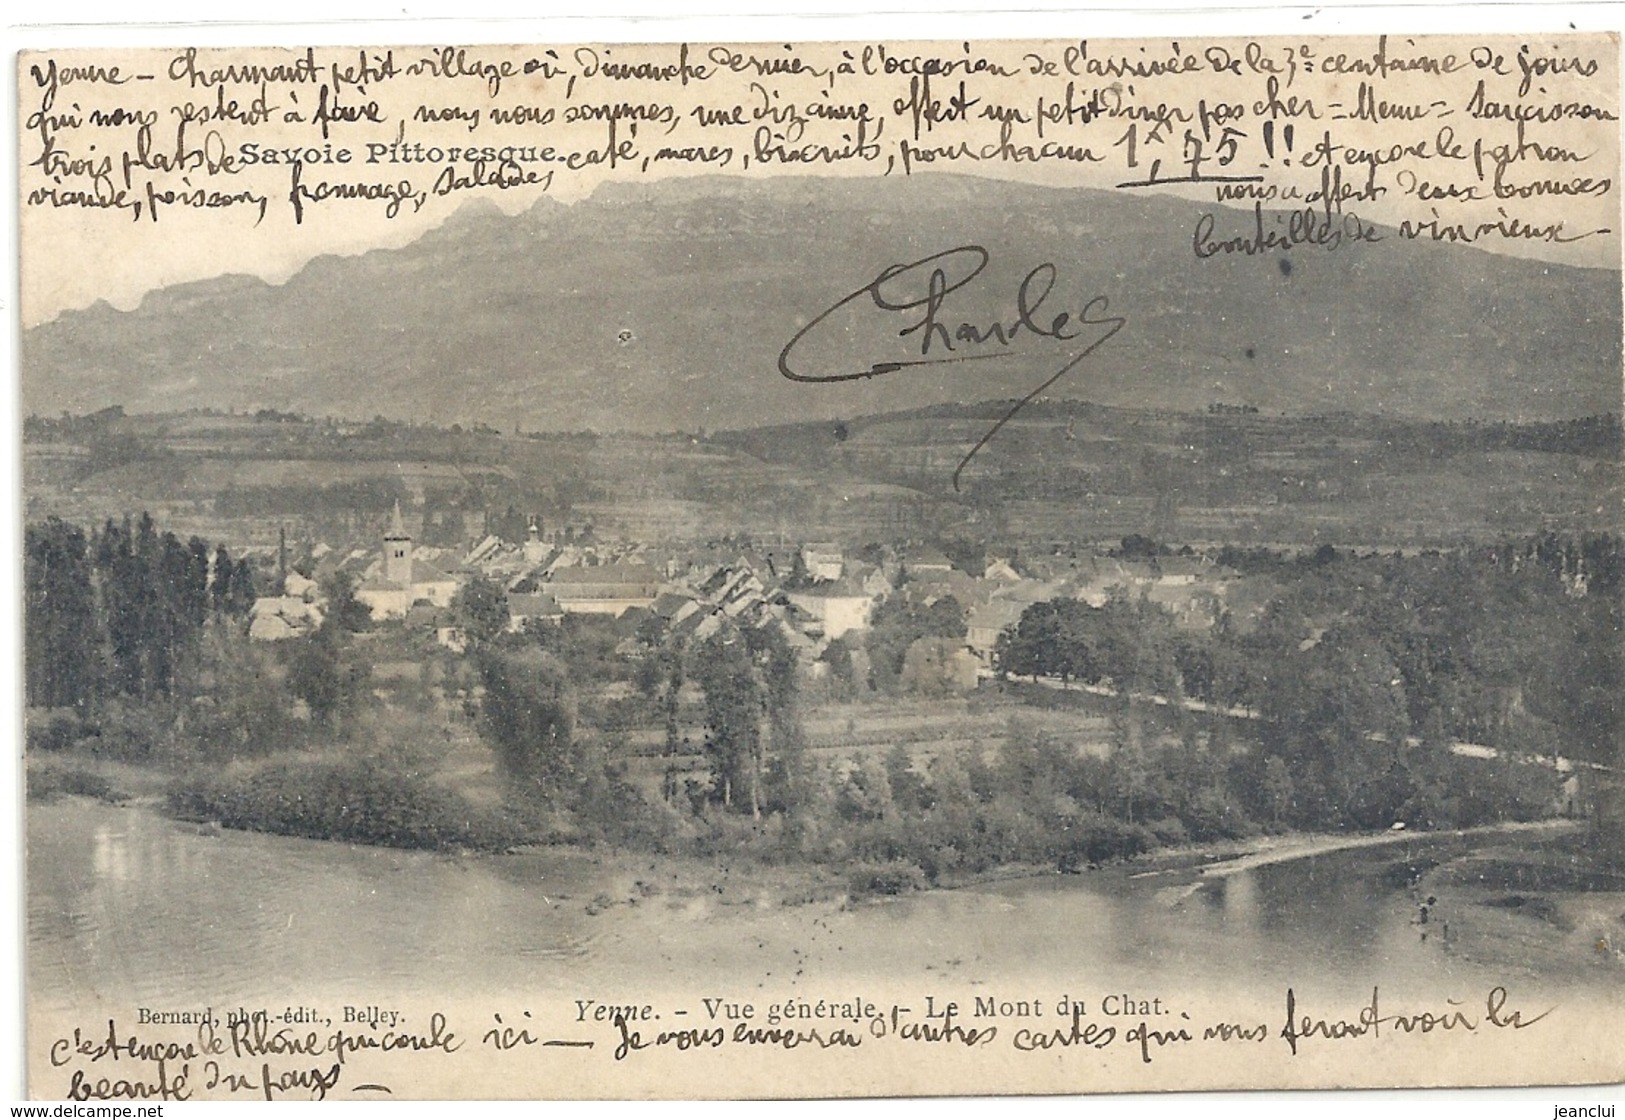 Yenne – Charmant petit village où, dimanche dernier, à l'occasion de l'arrivée de la 3e centaine de jours
qui nous restent à faire, nous nous sommes, une dizaine, offert un petit diner pas cher = Menu = Saucisson
trois plats de Savoie Pittoresque. café, marcs, biscuits, pour chacun 1f,75 !! et encore le patron
viande, poisson, frommage, salades, nous a offert deux bonnes
bouteilles de vin vieux –
Charles
Bernard, phot.-édit., Belley. Yenne. – Vue générale. – Le Mont du Chat.
c'est encore le Rhône qui coule ici — Je vous enverrai d'autres cartes qui vous feront voir la
beauté du pays –
http://www.delcampe.net
jeanclui